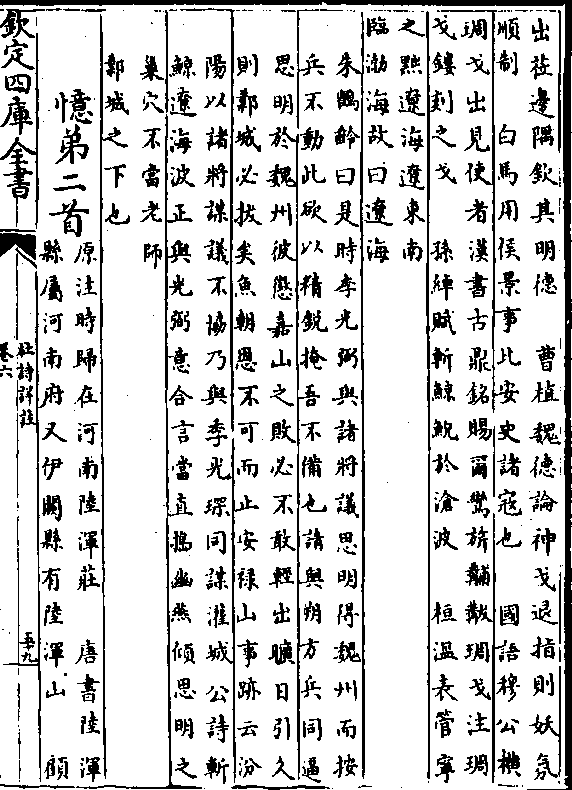 出莅邊隅欽其明德　曹植魏德論神戈退指則妖氛
順制　白馬用侯景事比安史諸冦也　國語穆公橫
琱戈出見使者漢書古鼎銘賜爾鸞旂黼黻琱戈注琱
戈鏤刻之戈　孫綽賦斬鯨鯢於滄波　桓温表管寧
之黙遼海遼東南
臨渤海故曰遼海
朱鶴齡曰是時李光弼與諸將議思明得魏州而按
兵不動此欲以精銳掩吾不備也請與朔方兵同逼
思明於魏州彼懲嘉山之敗必不敢輕出曠日引久
則鄴城必拔矣魚朝恩不可而止安禄山事跡云汾
陽以諸將謀議不協乃與季光琛同謀灌城公詩斬
鯨遼海波正與光弼意合言當直搗幽燕傾思明之
巢穴不當老師
鄴城之下也
憶第二首
原注時歸在河南陸渾莊　唐書陸渾
縣屬河南府又伊闕縣有陸渾山　顧
欽定四庫全書
杜詩詳註
卷六
五九